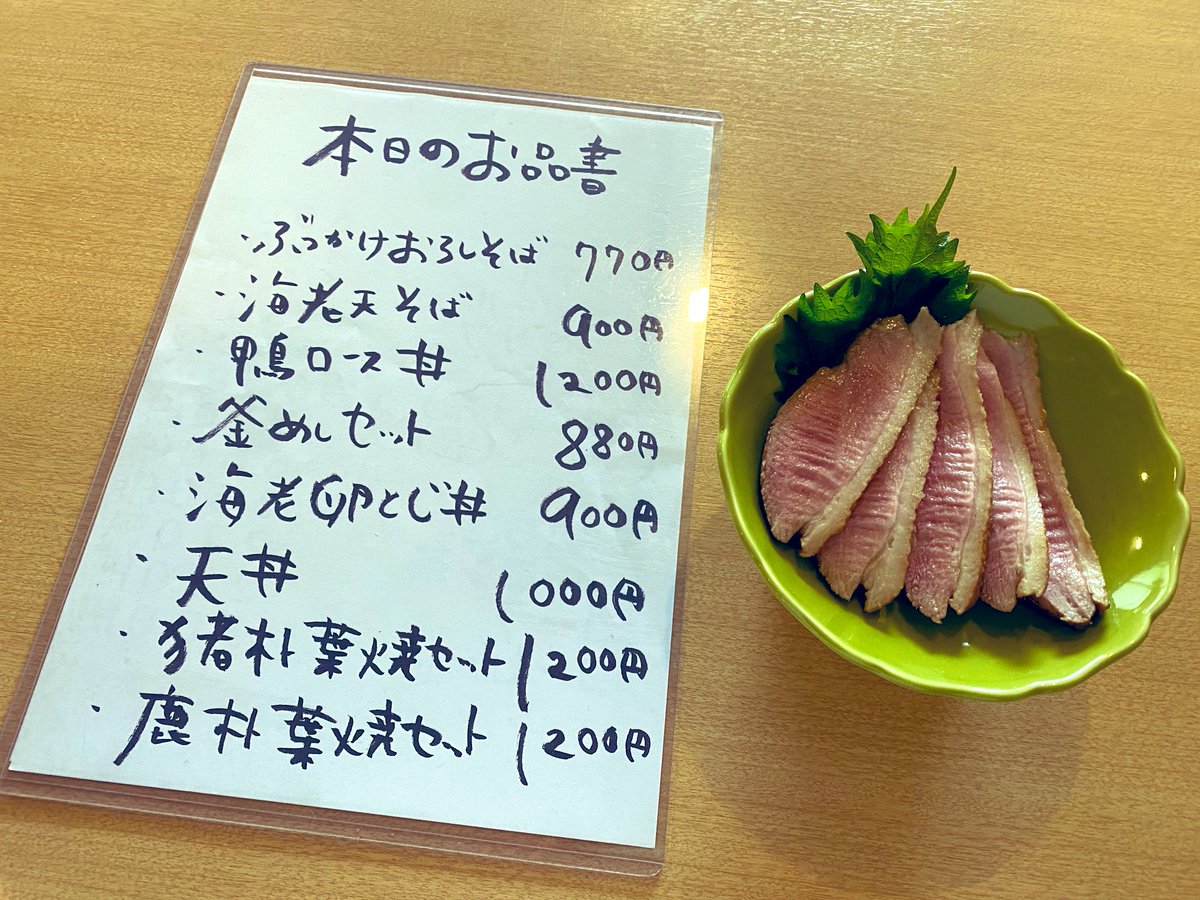 本日のお品書
・ぶっかけおろしそば 770円
・海老天そば 900円
・鴨ロース丼 1200円
・釜めしセット 880円
・海老卵とじ丼 900円
・天丼 1000円
・猪朴葉焼セット 1200円
・鹿朴葉焼セット 1200円